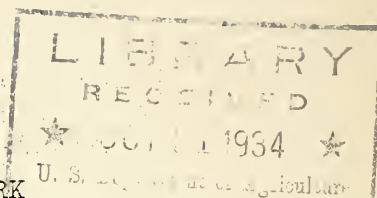 LIBRARY
RECEIVED
★ 1934 ★
U. S. Department of Agriculture
RK